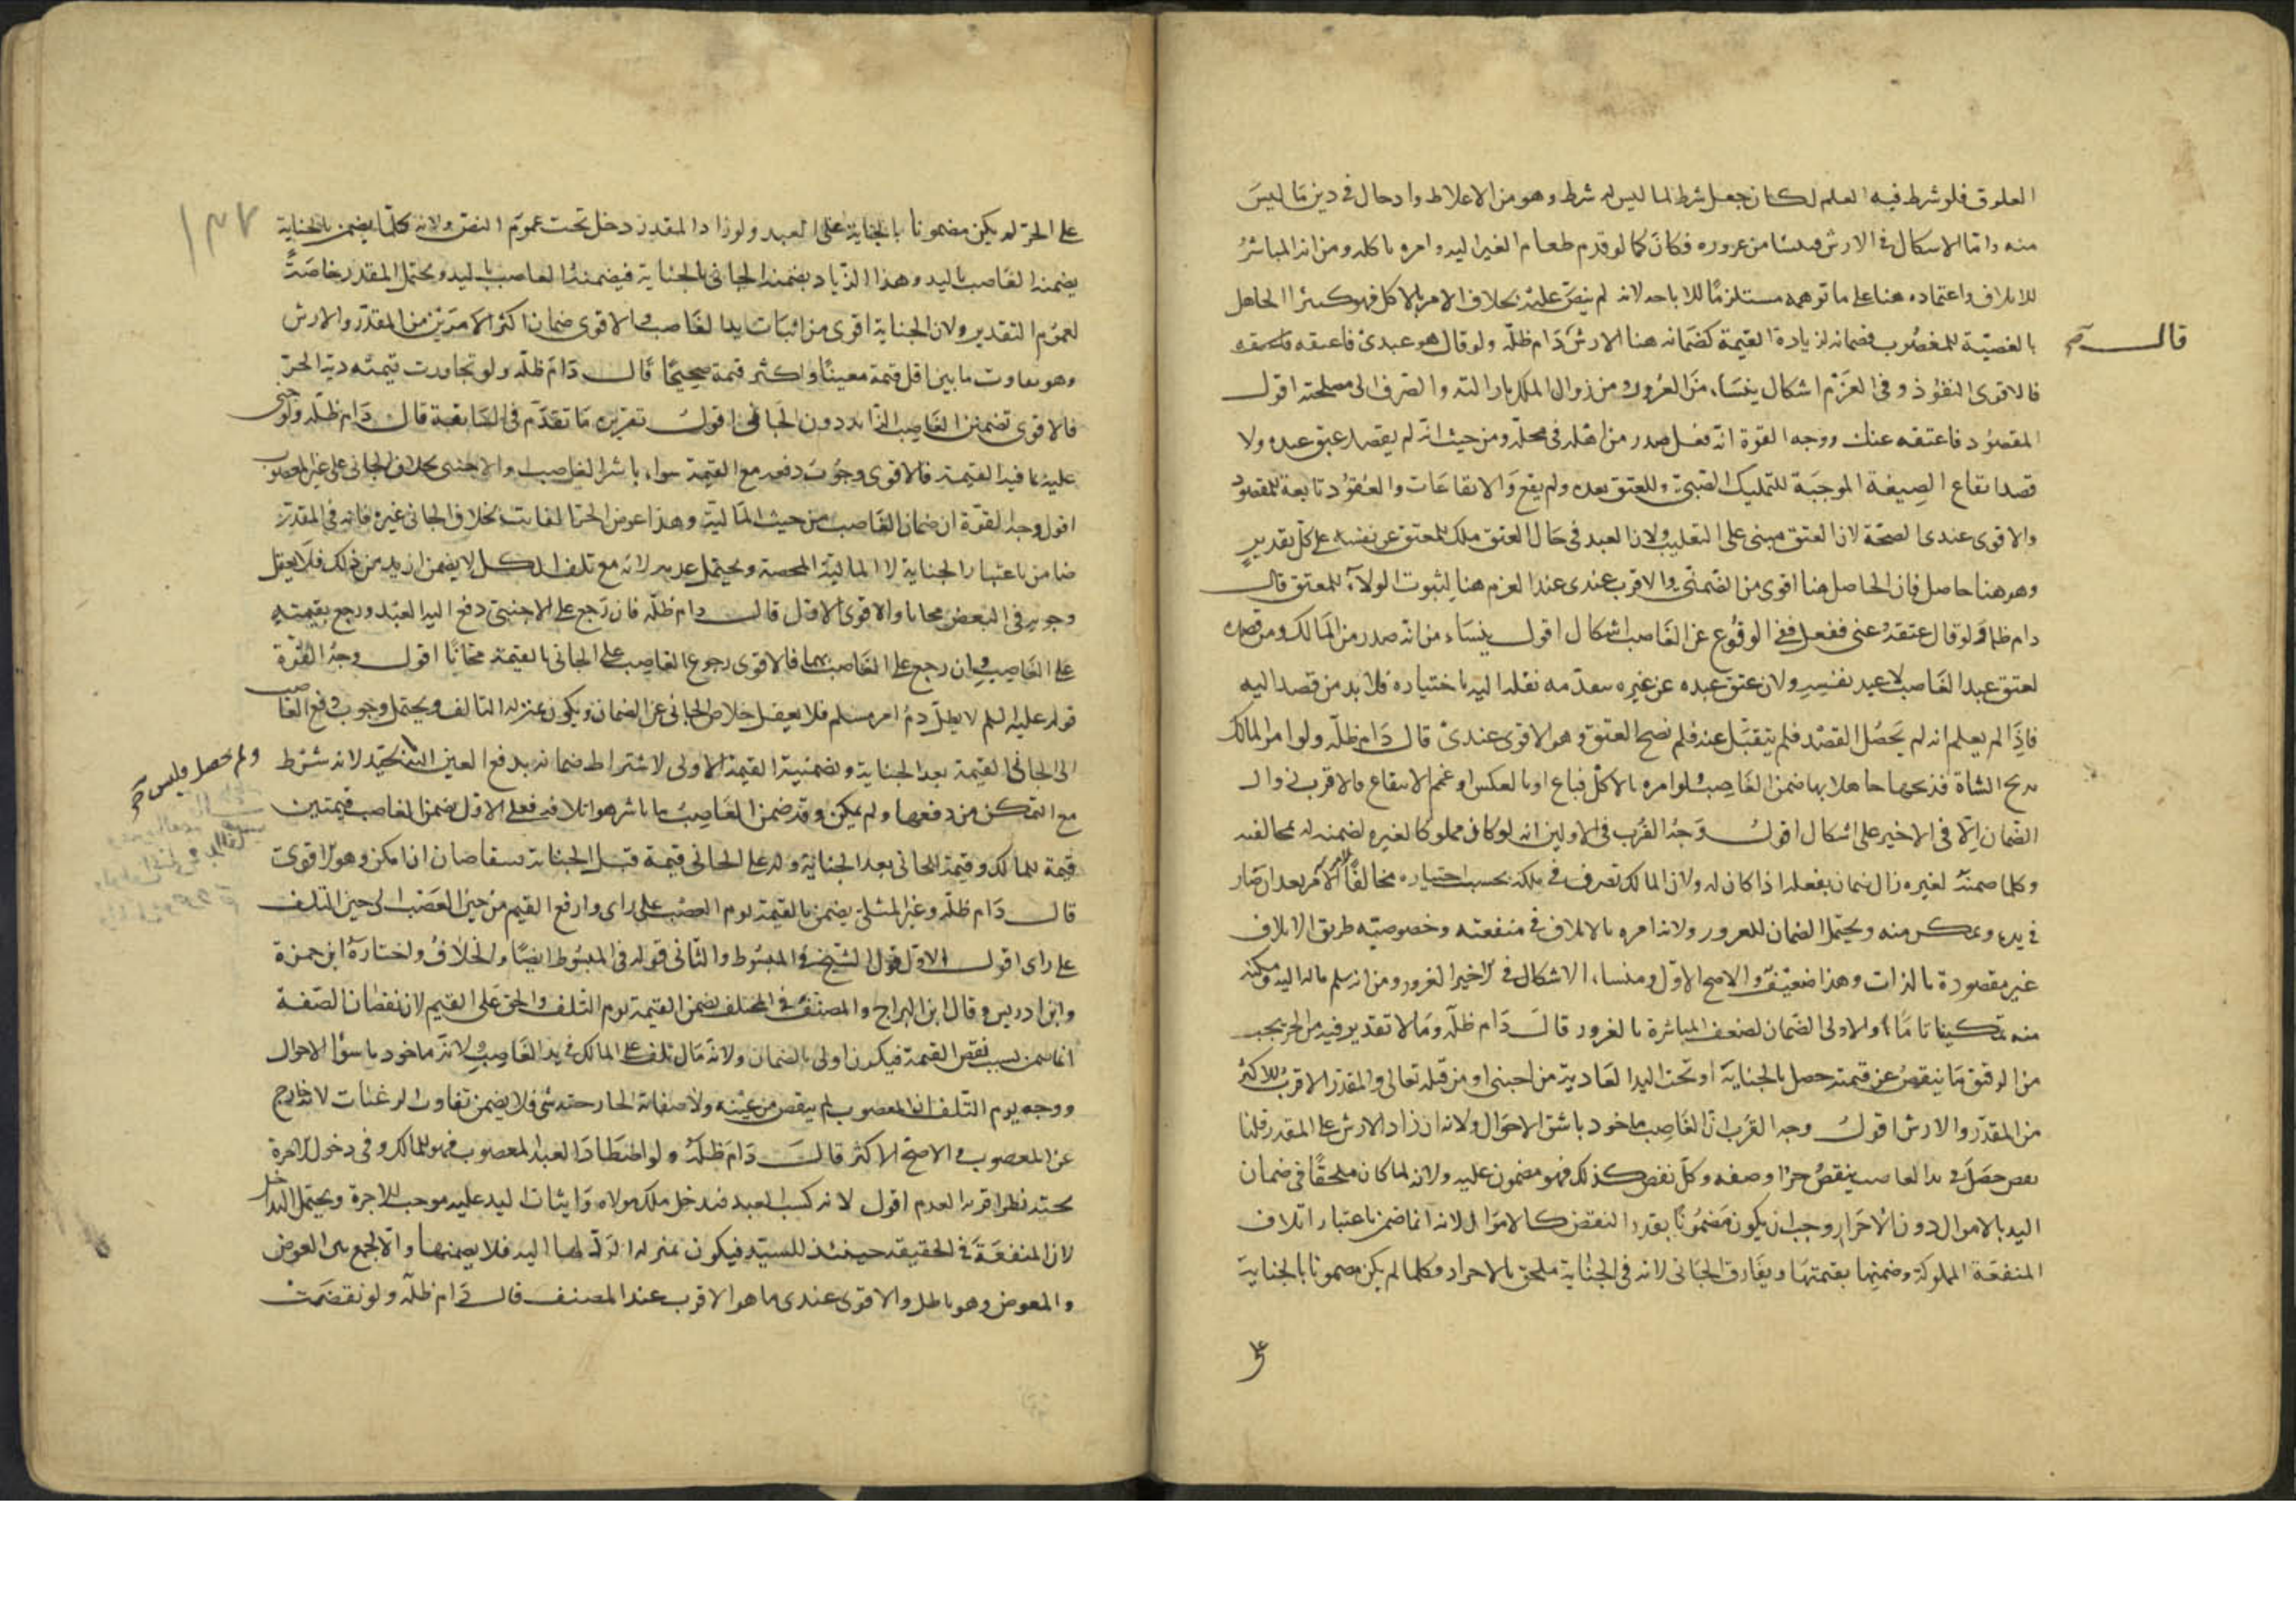 العلوق فلو شرط فيه العلم لكان جعل شرط لما ليس له شرط وهو من الاغلاط وادخال في دين ما ليس
منه واما الاشكال في الارش فمنشا من غروره فكان كما لو قدم طعام الغير اليه وامره باكله ومن انه المباشر
للاتلاف واعتماده هنا على ما توهمه مستلزما للاباحه لانه لم ينص عليه بخلاف الامر بالاكل فهو كمشترا الجاهل
قال
بالغصبية للمغصوب فضمانه لزيادة القيمة كضمانه هنا الارش دام ظله ولو قال هو عبدي فاعتقه فاعتقه
فالاقوى النفوذ وفي الغرم اشكال ينشا من الغرور ومن زوال الملك بازالته والصرف الى مصلحته اقول
المقصود فاعتقه عنك ووجه القوة انه فعل صدر من اهله في محله ومن حيث انه لم يقصد عتق عبده ولا
قصد ايقاع الصيغة الموجبة للتمليك الضمني وللعتق بعده ولم يقع والايقاعات والعقود تابعة للمقصود
والاقوى عندي الصحة لان العتق مبني على التغليب ولان العبد في حال العتق ملك للمعتق عن نفسه على كل تقدير
وهو هنا حاصل فان الحاصل هنا اقوى من الضمني والاقرب عندي عند الغرم هنا لثبوت الولاء للمعتق قال
دام ظله ولو قال اعتقه عني ففعل ففي الوقوع عن الغاصب اشكال اقول ينشاء من انه صدر من المالك ومن قصده
لعتق عبد الغاصب لا عبد نفسه ولان عتق عبده عن غيره نقله اليه باختياره فلا بد من قصد اليه
فاذا لم يعلم انه لم يحصل القصد فلم ينتقل عنه فلم يصح العتق وهو الاقوى عندي قال دام ظله ولو امر المالك
بذبح الشاة فذبحها جاهلا بها ضمن الغاصب ولو امره بالاكل فباع او بالعكس او عمم الانتفاع فالاقرب زوال
الضمان الا في الاخير على اشكال اقول وجه القرب في الاولين انه لو كان مملوكا لغيره لضمنه له بمخالفته
وكلما ضمنه لغيره زال ضمانه بفعله اذا كان له ولان المالك تصرف في ملكه بحسب اختياره مخالفا لامر الآمر بعد ان صار
في يده وتمكن منه ويحتمل الضمان للغرور ولانه امره بالاتلاف في منفعته وخصوصيته طريق الاتلاف
غير مقصودة بالذات وهذا ضعيف والاصح الاول ومنشاء الاشكال في الاخير الغرور ومن انه سلم ماله اليه ومكنه
منه تمكينا تاما والاولى الضمان لضعف المباشرة بالغرور قال دام ظله وما لا تقدير فيه من الحر يجب
من الرقيق ما ينقص عن قيمته حصل بالجناية او تحت اليد العادية من اجنبي او من قبله تعالى والمقدر الاقرب الاكثر
من المقدر والارش اقول وجه القرب ان الغاصب ماخوذ باشق الاحوال ولانه ان زاد الارش على المقدر قلنا
نقص حصل في يد الغاصب ينقص جزا وصفه وكل نقص كذلك فهو مضمون عليه ولانه لما كان ملحقا في ضمان
اليد بالاموال دون الاحرار وجب ان يكون مضمونا بقدر النقص كالاموال لانه انما ضمن باعتبار اتلاف
المنفعة المملوكة وضمنها بقيمتها ويفارق الجاني لانه في الجناية ملحق بالاحرار وكلما لم يكن مضمونا بالجناية
على الحر لم يكن مضمونا بالجناية على العبد ولو زاد المقدر دخل تحت عموم النص ولانه كلما يضمن بالجناية
يضمنه الغاصب باليد وهذا الزياد يضمنه الجاني بالجناية فيضمنه الغاصب باليد ويحتمل المقدر خاصة
لعموم التقدير ولان الجناية اقوى من اثبات يد الغاصب والاقوى ضمان اكثر الامرين من المقدر والارش
وهو تفاوت ما بين اقل قيمة معيبا واكثر قيمة صحيحا قال دام ظله ولو تجاوزت قيمته دية الحر
فالاقوى تضمين الغاصب الزائد دون الجاني اقول تقريره ما تقدم في السابقة قال دام ظله ولو جنى
عليه بما فيه القيمة فالاقوى وجوب دفعه مع القيمة سواء باشر الغاصب والاجنبي بخلاف الجاني على غير المغصوب
اقول وجه القوة ان ضمان الغاصب من حيث المالية وهذا عوض الجزء الفايت بخلاف الجاني غيره فانه في المقدر
ضامن باعتبار الجناية لا المالية المحضة ويحتمل عدمه لانه مع تلف الكل لا يضمن ازيد من ذلك فلا يعقل
وجوبه في البعض مجانا والاقوى الاول قال دام ظله فان رجع على الاجنبي دفع اليه العبد ورجع بقيمته
على الغاصب وان رجع على الغاصب بهما فالاقوى رجوع الغاصب على الجاني بالقيمة مجانا اقول وجه القوة
قوله عليه السلم لا يطل دم امرء مسلم فلا يعقل خلاص الجاني عن الضمان ويكون بمنزلة التالف ويحتمل وجوب دفع الغاصب
الى الجاني القيمة بعد الجناية ولضمنيه القيمة الاولى لاشتراط ضمانه بدفع العين لانه شرط
ولم يحصل فليس
مع التمكن من دفعها ولم يمكن وقد ضمن الغاصب ما باشر هو اتلافه فعلى الاول يضمن الغاصب قيمتين
قيمة للمالك وقيمة للجاني بعد الجناية وله على الجاني قيمة قبل الجناية فيتقاصان ان امكن وهو الاقوى
قال دام ظله وغير المثلي يضمن بالقيمة يوم الغصب على راي وارفع القيم من حين الغصب الى حين التلف
على راي اقول الاول قول الشيخ في المبسوط والثاني قوله في المبسوط ايضا والخلاف واختاره ابن حمزة
وابن ادريس وقال ابن البراج والمصنف في المختلف يضمن القيمة يوم التلف والحق على القيم لان نقصان الصفة
انما ضمن بسبب نقص القيمة فيكون اولى بالضمان ولانه مال تلف على المالك في يد الغاصب ولانه ماخوذ باسوأ الاحوال
ووجه يوم التلف ان المغصوب لم ينقص من عينه ولا صفاته الخارجة شي فلا يضمن تفاوت الرغبات لانه خارج
عن المغصوب والاصح الاكثر قال دام ظله ولو اصطاد العبد المغصوب فهو للمالك وفي دخول الاجرة
تحته نظر اقربه العدم اقول لانه كسب العبد فيدخل ملك مولاه واثبات اليد عليه موجب للاجرة ويحتمل التداخل
لان المنفعة في الحقيقة حينئذ للسيد فيكون بمنزلة الرد لها اليه فلا يضمنها والا لجمع بين العوض
والمعوض وهو باطل والاقوى عندي ما هو الاقرب عند المصنف قال دام ظله ولو نقصت